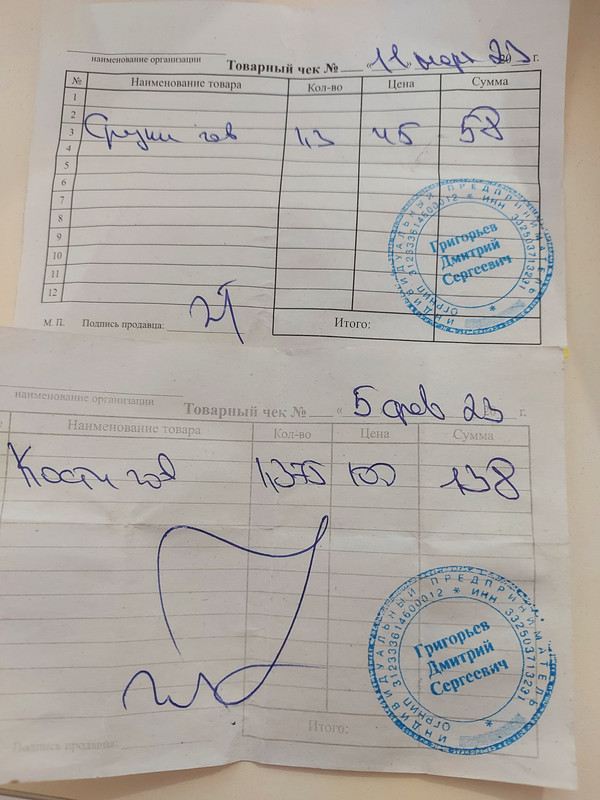 наименование организации
Товарный чек № « 11 » март 2023 г.
№ Наименование товара Кол-во Цена Сумма
1
2
3 Срезки гов 1,3 45 58
4
5
6
7
8
9
10
11
12
М. П. Подпись продавца: Итого:
ИНДИВИДУАЛЬНЫЙ ПРЕДПРИНИМАТЕЛЬ
ОГРНИП 312333614600012 * ИНН 332503713231
Григорьев
Дмитрий
Сергеевич
*
наименование организации
Товарный чек № « 5 фев 23 г.
Наименование товара Кол-во Цена Сумма
Кости гов 1,375 100 138
Итого:
Подпись продавца:
ИНДИВИДУАЛЬНЫЙ ПРЕДПРИНИМАТЕЛЬ
ОГРНИП 312333614600012 * ИНН 332503713231
Григорьев
Дмитрий
Сергеевич
*